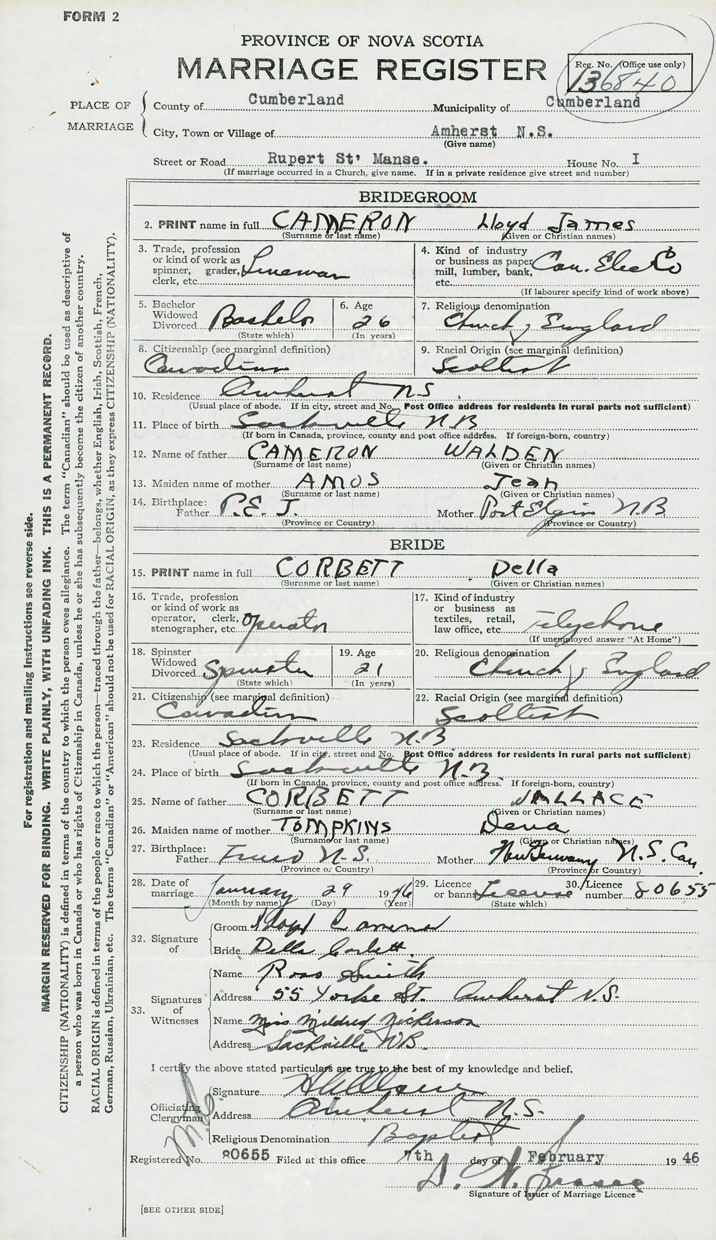 FORM 2
PROVINCE OF NOVA SCOTIA
MARRIAGE REGISTER
Reg. No. (Office use only)
136840
PLACE OF MARRIAGE
County of Cumberland Municipality of Cumberland
City, Town or Village of Amherst N.S.
(Give name)
Street or Road Rupert St' Manse. House No. I
(If marriage occurred in a Church, give name. If in a private residence give street and number)
BRIDEGROOM
2. PRINT name in full CAMERON Lloyd James
(Surname or last name) (Given or Christian names)
3. Trade, profession or kind of work as spinner, grader, clerk, etc. Lineman
4. Kind of industry or business as paper mill, lumber, bank, etc. Can. Elec Co
(If labourer specify kind of work above)
5. Bachelor Widowed Divorced Bachelor
(State which)
6. Age 26
(In years)
7. Religious denomination Church of England
8. Citizenship (see marginal definition) Canadian
9. Racial Origin (see marginal definition) Scottish
10. Residence Amherst NS.
(Usual place of abode. If in city, street and No. Post Office address for residents in rural parts not sufficient)
11. Place of birth Sackville N.B
(If born in Canada, province, county and post office address. If foreign-born, country)
12. Name of father CAMERON WALDEN
(Surname or last name) (Given or Christian names)
13. Maiden name of mother AMOS Jean
(Surname or last name) (Given or Christian names)
14. Birthplace: Father P.E.I. Mother Port Elgin N.B
(Province or Country) (Province or Country)
BRIDE
15. PRINT name in full CORBETT Della
(Surname or last name) (Given or Christian names)
16. Trade, profession or kind of work as operator, clerk, stenographer, etc. Operator
17. Kind of industry or business as textiles, retail, law office, etc. Telephone
(If unemployed answer "At Home")
18. Spinster Widowed Divorced Spinster
(State which)
19. Age 21
(In years)
20. Religious denomination Church of England
21. Citizenship (see marginal definition) Canadian
22. Racial Origin (see marginal definition) Scottish
23. Residence Sackville N.B
(Usual place of abode. If in city, street and No. Post Office address for residents in rural parts not sufficient)
24. Place of birth Sackville N.B.
(If born in Canada, province, county and post office address. If foreign-born, country)
25. Name of father CORBETT WALLACE
(Surname or last name) (Given or Christian names)
26. Maiden name of mother TOMPKINS Dena
(Surname or last name) (Given or Christian names)
27. Birthplace: Father Truro N.S. Mother New Germany N.S. Can.
(Province or Country) (Province or Country)
28. Date of marriage January 29 1946
(Month by name) (Day) (Year)
29. Licence or banns License
(State which)
30. Licence number 80655
32. Signature of
Groom Lloyd Cameron
Bride Della Corbett
33. Signatures of Witnesses
Name Ross Smith
Address 55 Yorke St. Amherst N.S.
Name Miss Mildred Nickerson
Address Sackville NB.
I certify the above stated particulars are true to the best of my knowledge and belief.
Officiating Clergyman
Signature
Address Amherst N.S.
Religious Denomination Baptist
Registered No. 80655 Filed at this office 7th day of February 19 46
Signature of Issuer of Marriage Licence
[SEE OTHER SIDE]
For registration and mailing instructions see reverse side.
MARGIN RESERVED FOR BINDING. WRITE PLAINLY, WITH UNFADING INK. THIS IS A PERMANENT RECORD.
CITIZENSHIP (NATIONALITY) is defined in terms of the country to which the person owes allegiance. The term "Canadian" should be used as descriptive of
a person who was born in Canada or who has rights of Citizenship in Canada, unless he or she has subsequently become the citizen of another country.
RACIAL ORIGIN is defined in terms of the people or race to which the person—traced through the father—belongs, whether English, Irish, Scottish, French,
German, Russian, Ukrainian, etc. The terms "Canadian" or "American" should not be used for RACIAL ORIGIN, as they express CITIZENSHIP (NATIONALITY).